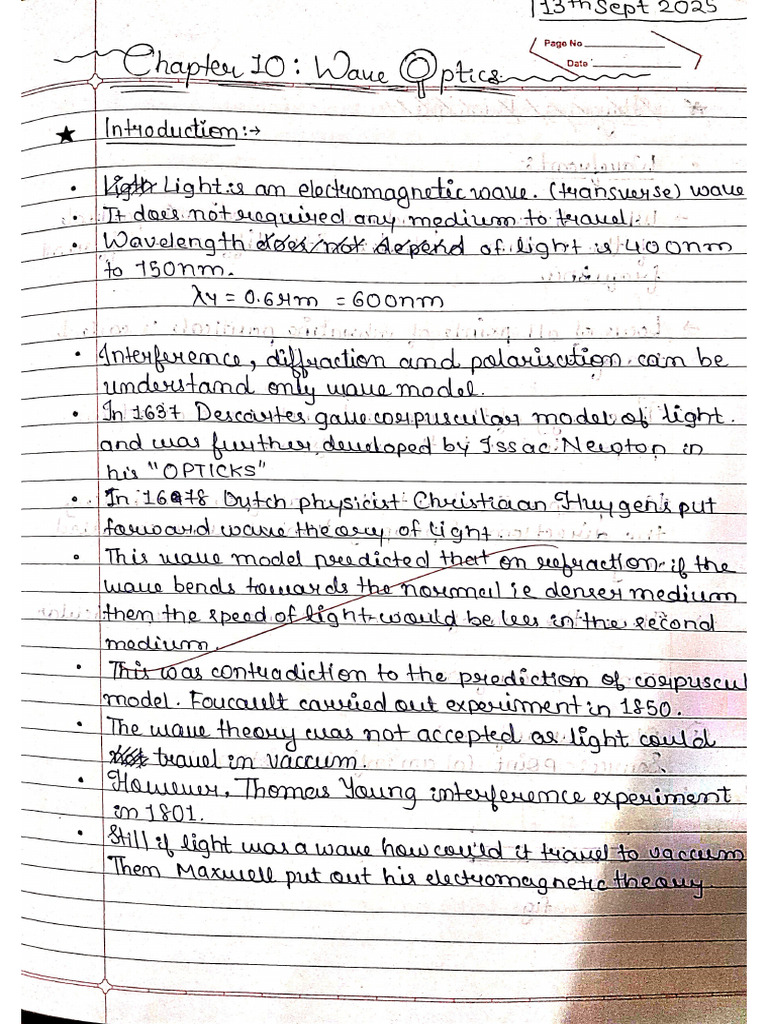 13th Sept 2025
Page No
Date
Chapter 10: Wave Optics
★ Introduction:→
• Light is an electromagnetic wave. (transverse) wave
• It does not required any medium to travel.
• Wavelength does not depend of light is 400nm
to 750nm.
= 600nm
• Interference, diffraction and polarisation can be
understand only wave model.
• In 1637 Descartes gave corpuscular model of light.
and was further developed by Issac Newton in
his "OPTICKS"
• In 1678 Dutch physicist Christiaan Huygens put
forward wave theory of light.
• This wave model predicted that on refraction if the
wave bends towards the normal ie denser medium
then the speed of light would be less in the second
medium.
• This was contradiction to the prediction of corpuscul
model. Foucault carried out experiment in 1850.
• The wave theory was not accepted as light could
travel in vaccum.
• However, Thomas Young interference experiment
in 1801.
• Still if light was a wave how could it travel to vaccum
Then Maxwell put out his electromagnetic theory